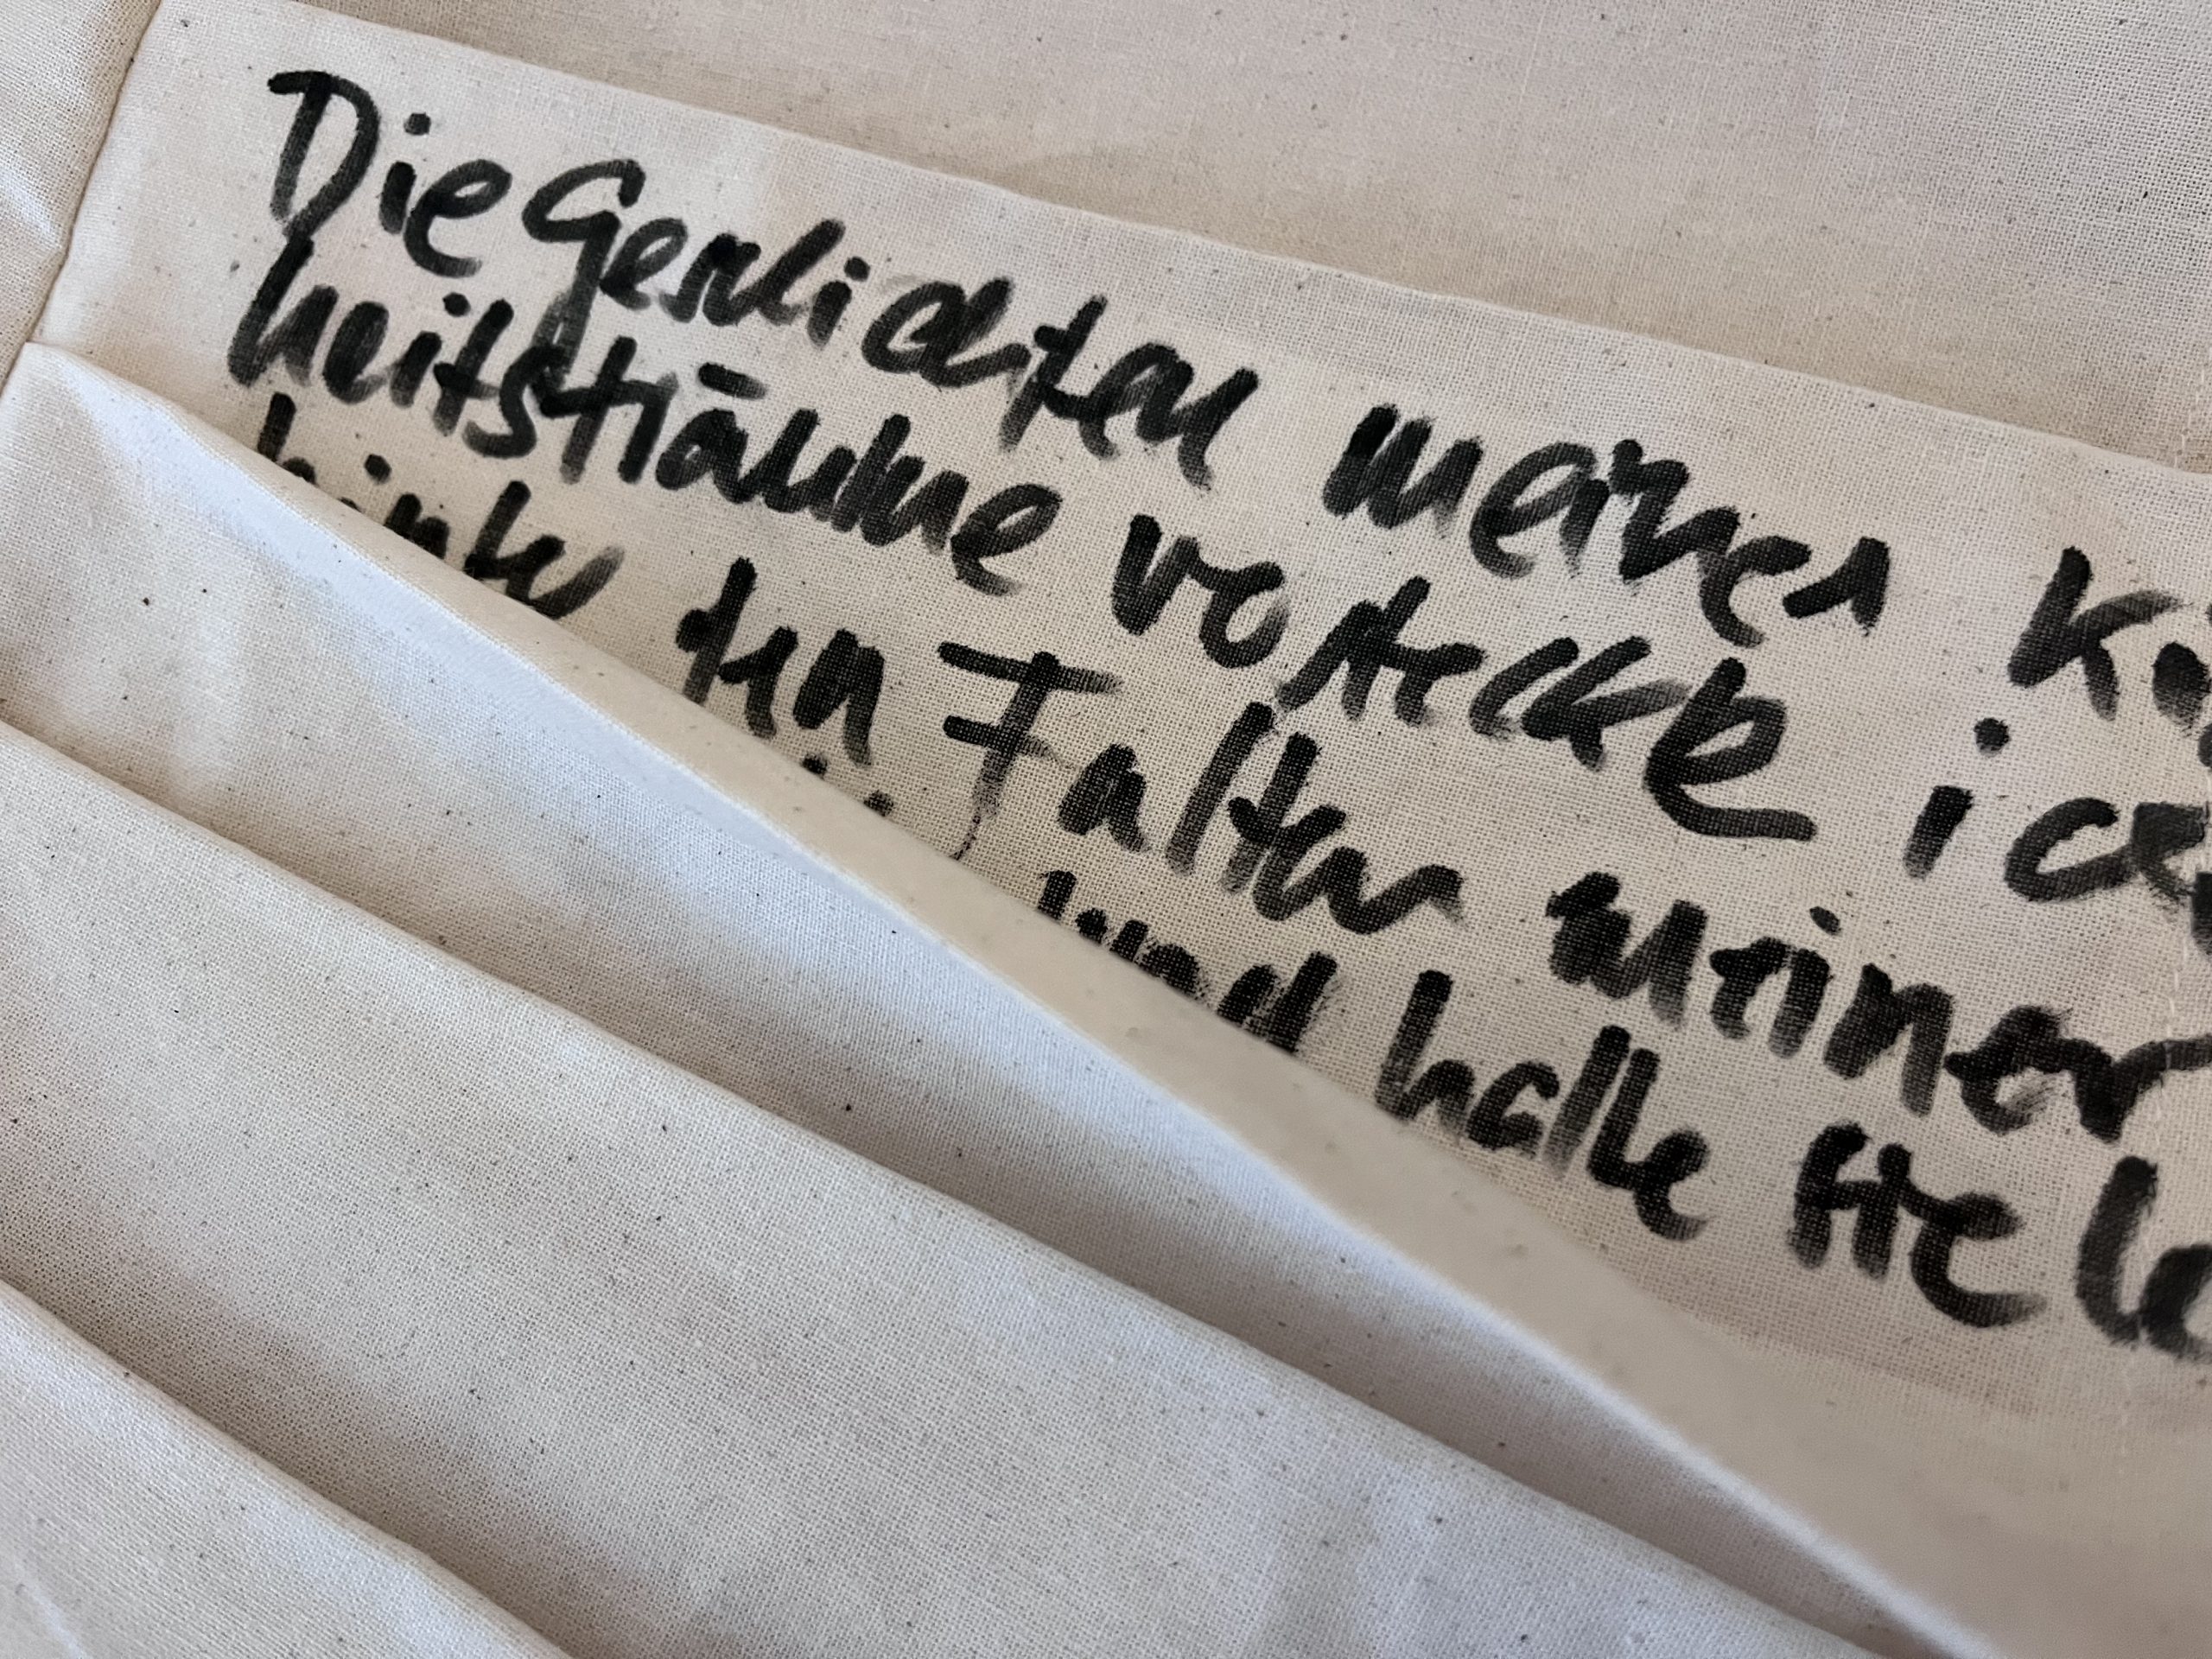 Die Geschichten meiner K
heitsträume verstecke ich
hinter den Falten meiner
und halte